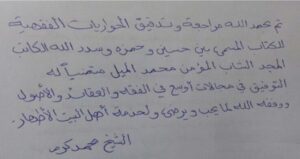 تم بحمد الله مراجعة وتدقيق الحواريات الفقهية
للكتاب المسمى بين حسين وحمزه وسدد الله الكاتب
المجد الشاب المؤمن محمد الميل متمنياً له
التوفيق في مجالات أوسع في الفقه والعقائد والأصول
ووفقه الله لما يحب ويرضى ولخدمة أهل البيت الأطهار.
الشيخ